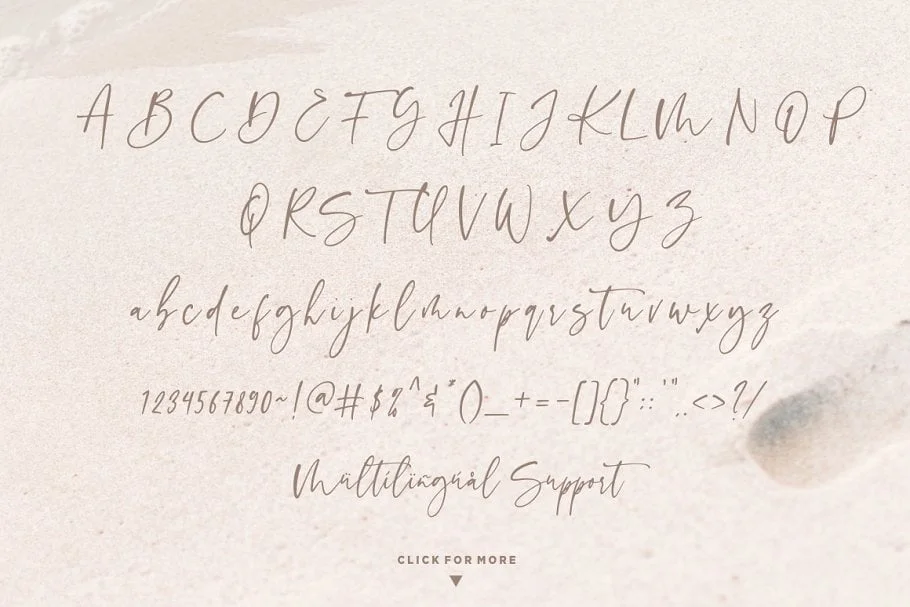 A B C D E F G H I J K L M N O P
Q R S T U V W X Y Z
a b c d e f g h i j k l m n o p q r s t u v w x y z
1234567890~!@#$%^&*()_+=-[]{}":;'",.<>?/
Mültilïngúål Support
CLICK FOR MORE